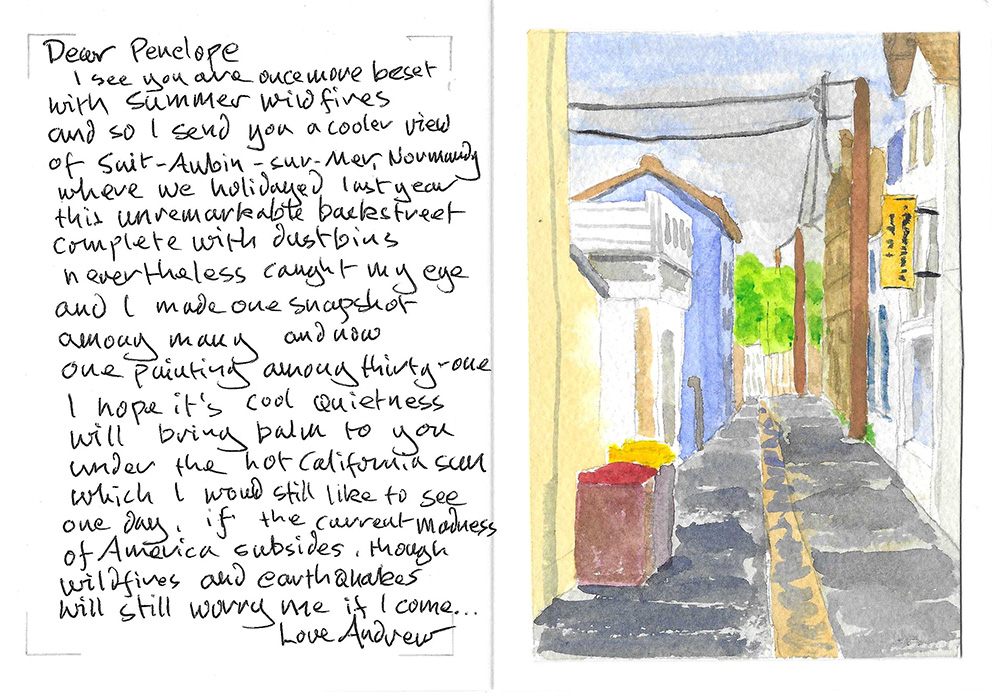 Dear Penelope
I see you are once more beset
with summer wildfires
and so I send you a cooler view
of Sait-Aubin-sur-Mer, Normandy
where we holidayed last year
this unremarkable backstreet
complete with dustbins
nevertheless caught my eye
and I made one snapshot
among many and now
one painting among thirty-one
I hope it's cool quietness
will bring balm to you
under the hot California sun
which I would still like to see
one day, if the current madness
of America subsides, though
wildfires and earthquakes
will still worry me if I come...
Love Andrew